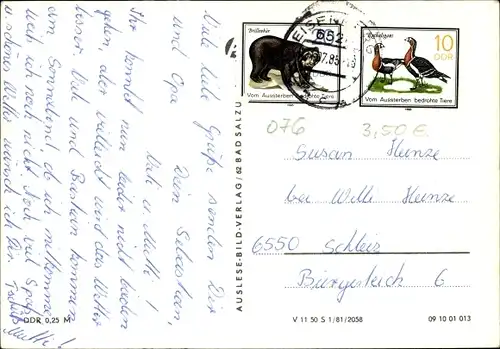 Viele liebe Grüße senden Dir
und Opa Dein Sebastian,
Vati u. Mutti!
Ihr könnt nun leider nicht baden
gehen, aber vielleicht wird das Wetter
besser. Vati und Bastian kommen
am Sonnabend, ob ich mitkomme
weiß ich noch nicht. Noch viel Spaß
u. schönes Wetter wünscht Dir
Mutti!
DDR 0,25 M
AUSLESE-BILD-VERLAG 62 BAD SALZU
Brillenbär
Vom Aussterben bedrohte Tiere
EISEN
652
7.85
Rothalsgans
10
DDR
Vom Aussterben bedrohte Tiere
076
3,50 €
Susan Heinze
bei Willi Heinze
6550 Schleiz
Bürgerteich 6
V 11 50 S 1/81/2058
09 10 01 013